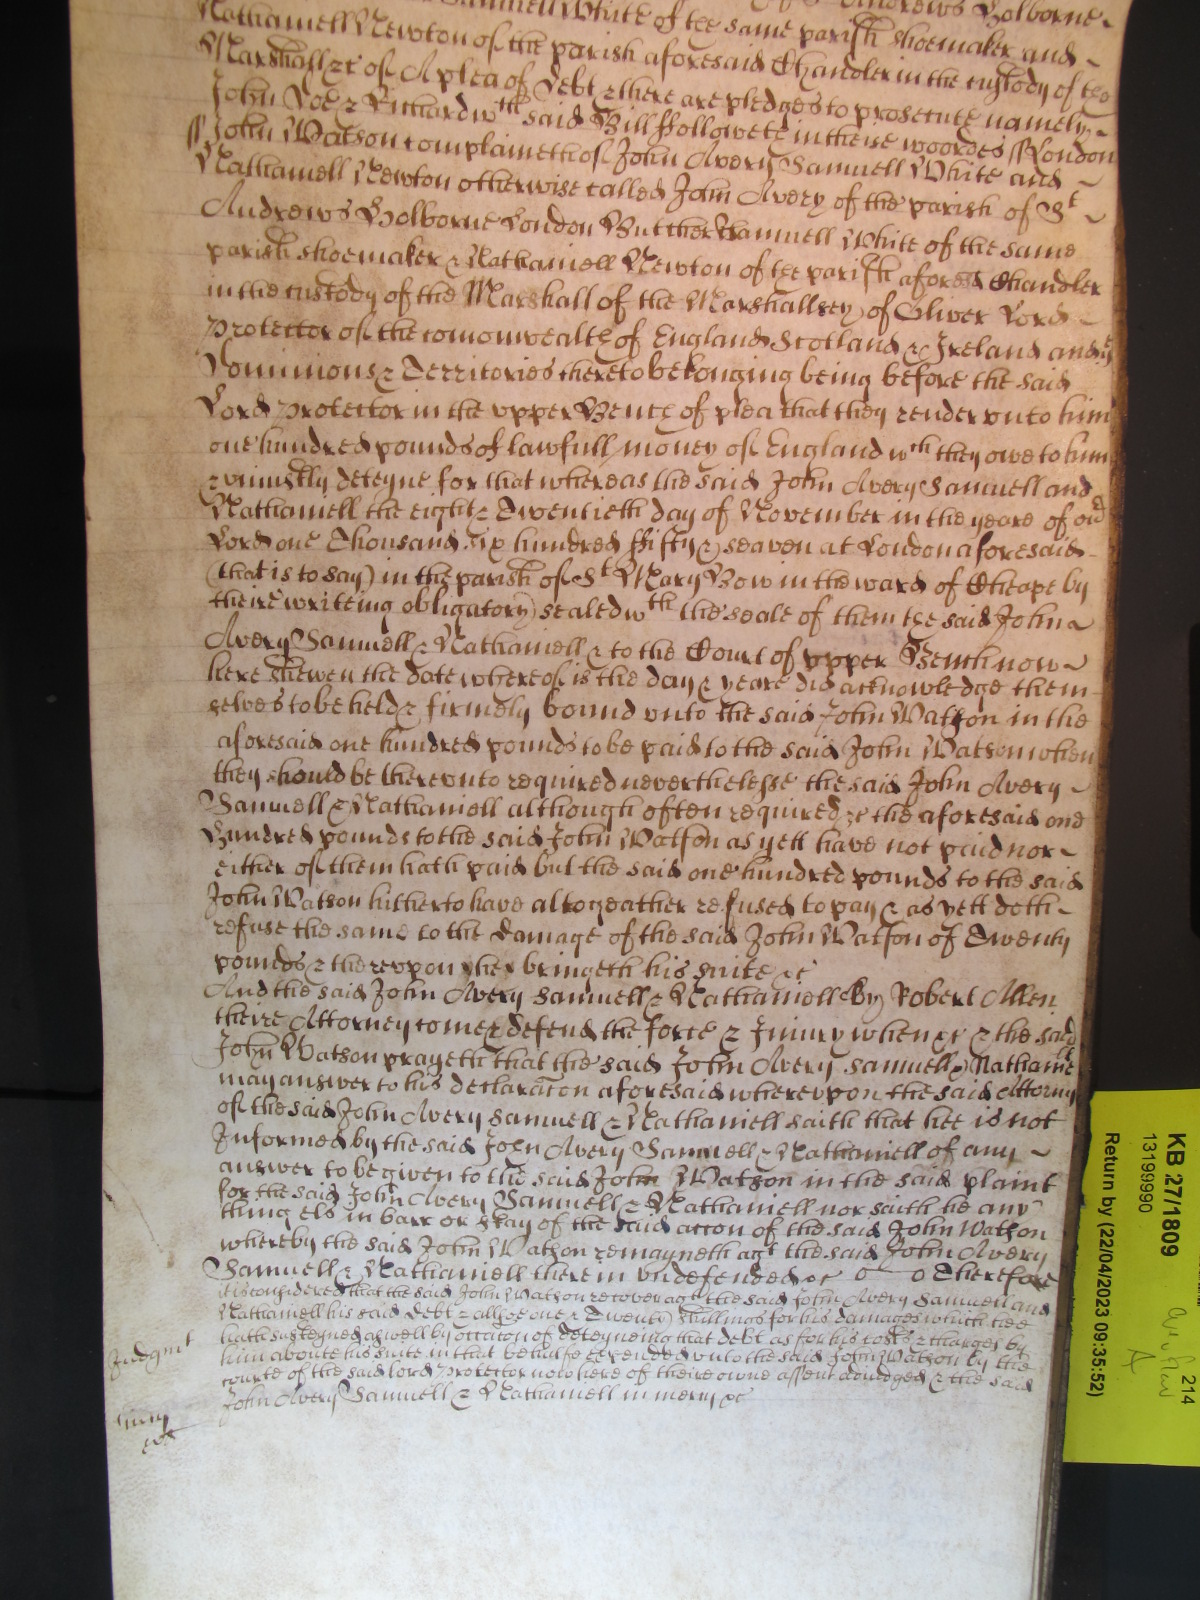 Samuell White of the same parish shoemaker and
Nathaniell Newton of the parish aforesaid Chandler in the custody of the
Marshall &c of A plea of debt & there are pledges to prosecute namely
John Doe & Richard wth said Bill ffolloweth in theise woordes ss London
ss John Watson complaineth of John Avery Samuell White and
Nathaniell Newton otherwise called John Avery of the parish of St
Andrews Holborne London Butcher Samuell White of the same
parish shoemaker & Nathaniell Newton of the parish aforesd Chandler
in the custody of the Marshall of the Marshallsey of Oliver Lord
Protector of the comonwealth of England Scotland & Ireland and ye
Dominions & Territories thereto belonging being before the said
Lord Protector in the upper Bench of plea that they render unto him
one hundred pounds of lawfull money of England wch they owe to him
& uniustly deteyne for that whereas the said John Avery Samuell and
Nathaniell the eight & Twentieth day of November in the yeare of our
Lord one Thousand six hundred ffifty & seaven at London aforesaid
(that is to say) in the parish of St Mary Bow in the ward of Cheape by
their writeing obligatory sealed wth the seale of them the said John
Avery Samuell & Nathaniell & to the Court of upper Bench now
here shewen the date whereof is the day & yeare did acknowledge them
selves to be held & firmely bound unto the said John Watson in the
aforesaid one hundred pounds to be paid to the said John Watson when
they should be thereunto required neverthelesse the said John Avery
Samuell & Nathaniell although often required &c the aforesaid one
Hundred pounds to the said John Watson as yett have not paid nor
either of them hath paid but the said one hundred pounds to the said
John Watson hitherto have altogeather refused to pay & as yett doth
refuse the same to the damage of the said John Watson of Twenty
pounds & thereupon he bringeth his suite &c
And the said John Avery Samuell & Nathaniell by Robert Allen
theire Attorney come & defend the force & Injury when &c & the said
John Watson prayeth that the said John Avery Samuell & Nathaniell
may answer to his declaracon aforesaid whereupon the said Attorny
of the said John Avery Samuell & Nathaniell saith that hee is not
Informed by the said John Avery Samuell & Nathaniell of any
answer to be given to the said John Watson in the said plaint
for the said John Avery Samuell & Nathaniell nor saith he any
thing els in barr or stay of the said accon of the said John Watson
whereby the said John Watson remayneth agt the said John Avery
Samuell & Nathaniell therein undefended &c Therefore
it is considered that the said John Watson recover agt the said John Avery Samuell and
Nathaniell his said debt & allsoe one & Twenty shillings for his damages which hee
hath susteyned aswell by occacon of deteyneing that debt as for his costs & charges by
him aboute his suite in that behalfe expended unto the said John Watson by the
Judgmt
courte of the said lord Protector now here of theire owne assent adiudged & the said
John Avery Samuell & Nathaniell in mercy &c
KB 27/1809
13199990
Return by (22/04/2023 09:35:52)
214